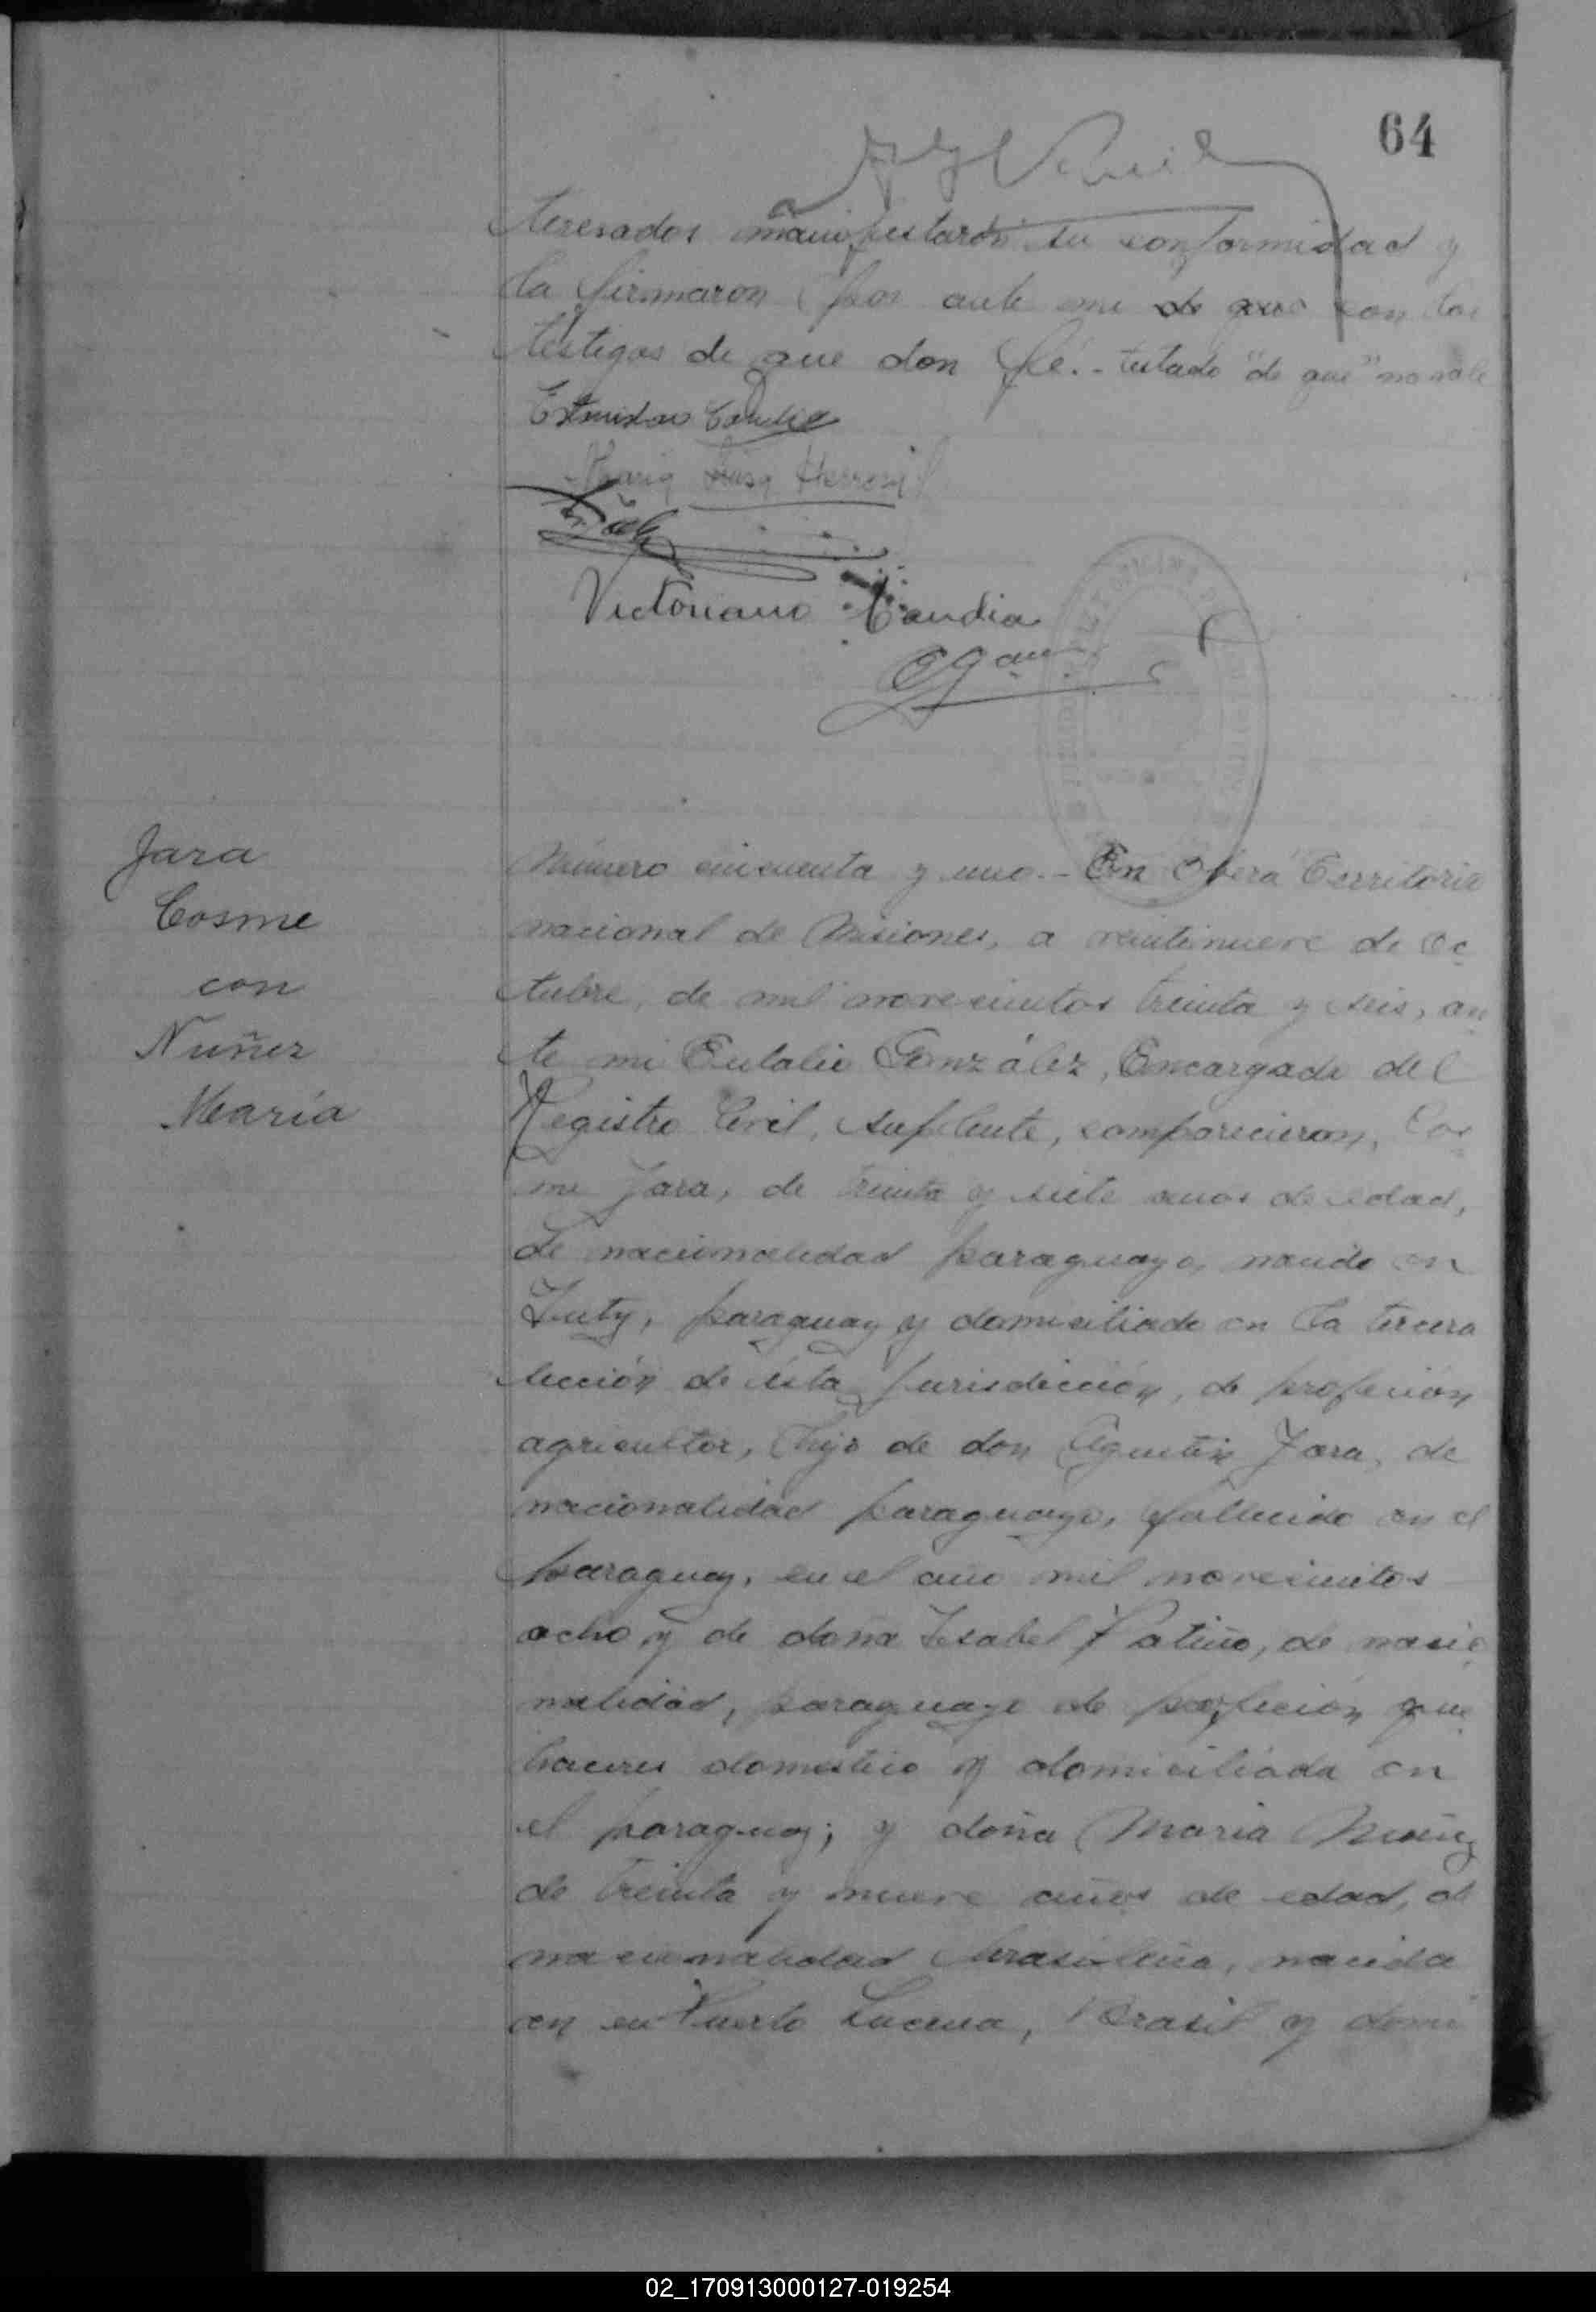 64
teresados manifestaron su conformidad y
la firmaron por ante mi de que con los
testigos de que don fé.- testado "de que" no vale
Estanislao Candia
Maria Herrera
Victoriano Candia
Jara
Cosme
con
Nuñez
María
Número cincuenta y uno.- En Oberá Territorio
nacional de Misiones, a veintinueve de oc
tubre, de mil novecientos treinta y seis, an
te mi Eulalio González, Encargado del
Registro Civil, suplente, comparecieron, Cos
me Jara, de treinta y siete anos de edad,
de nacionalidad paraguayo, nacido en
Yuty, paraguay y domiciliado en la tercera
sección de ésta jurisdicción, de profeción
agricultor, hijo de don Agustín Jara, de
nacionalidad paraguayo, fallecido en el
paraguay, en el año mil novecientos
ocho y de doña Isabel Patiño, de nacio
nalidad, paraguaya de profeción que
haceres domestico y domiciliada en
el paraguay; y doña Maria Nuñez
de treinta y nueve años de edad, de
nacionalidad brasileña, nacida
en en Puerto Lucena, Brasil y domi
02_170913000127-019254